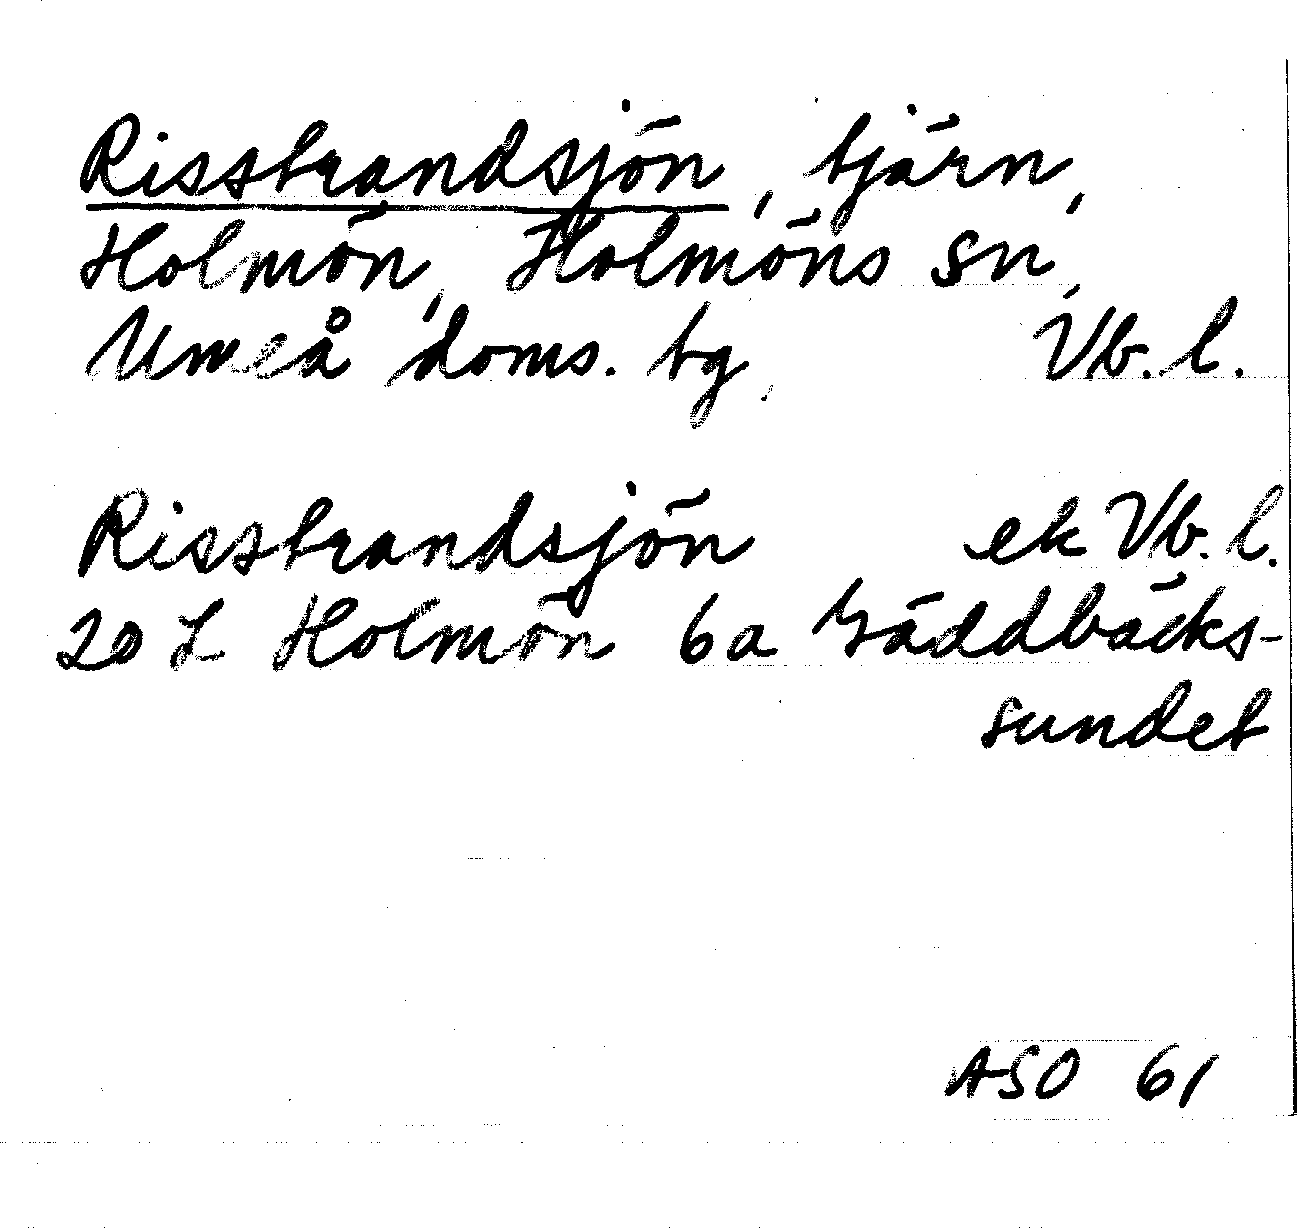 Rissbrandsjön, tjärn,
Holmön, Holmöns sn,
Umeå doms. tg, Vb. l.
Rissbrandsjön ek Vb. l.
20 L Holmön 6a Gäddbäcks-
sundet
ASO 61